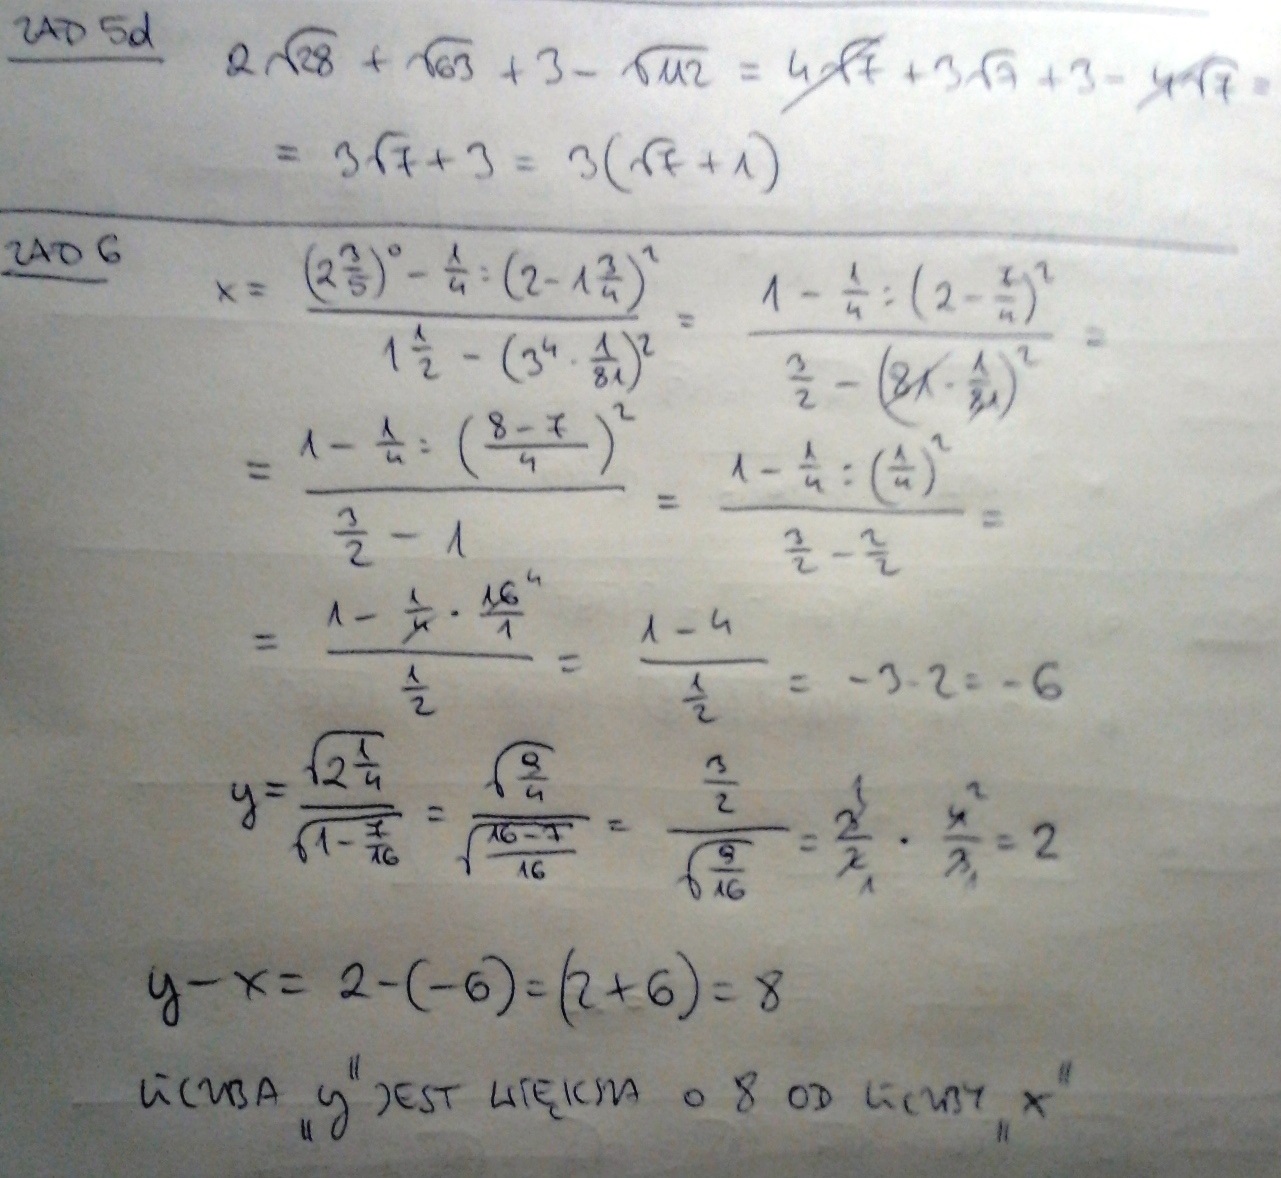 ZAD 5d 2√28 + √63 + 3 - √112 = 4√7 + 3√7 + 3 - 4√7 =
= 3√7 + 3 = 3(√7 + 1)
ZAD 6 x = ((2 3/5)^0 - 1/4 : (2 - 1 3/4)^2) / (1 1/2 - (3^4 · 1/81)^2) = (1 - 1/4 : (2 - 7/4)^2) / (3/2 - (81 · 1/81)^2) =
= (1 - 1/4 : ((8-7)/4)^2) / (3/2 - 1) = (1 - 1/4 : (1/4)^2) / (3/2 - 2/2) =
= (1 - 1/4 · 16/1 4) / (1/2) = (1 - 4) / (1/2) = -3 · 2 = -6
y = √(2 1/4) / √(1 - 7/16) = √(9/4) / √((16-7)/16) = (3/2) / √(9/16) = 3 1/2 1 · 4 2/3 1 = 2
y - x = 2 - (-6) = (2 + 6) = 8
LICZBA „y" JEST WIĘKSZA o 8 OD LICZBY „x"